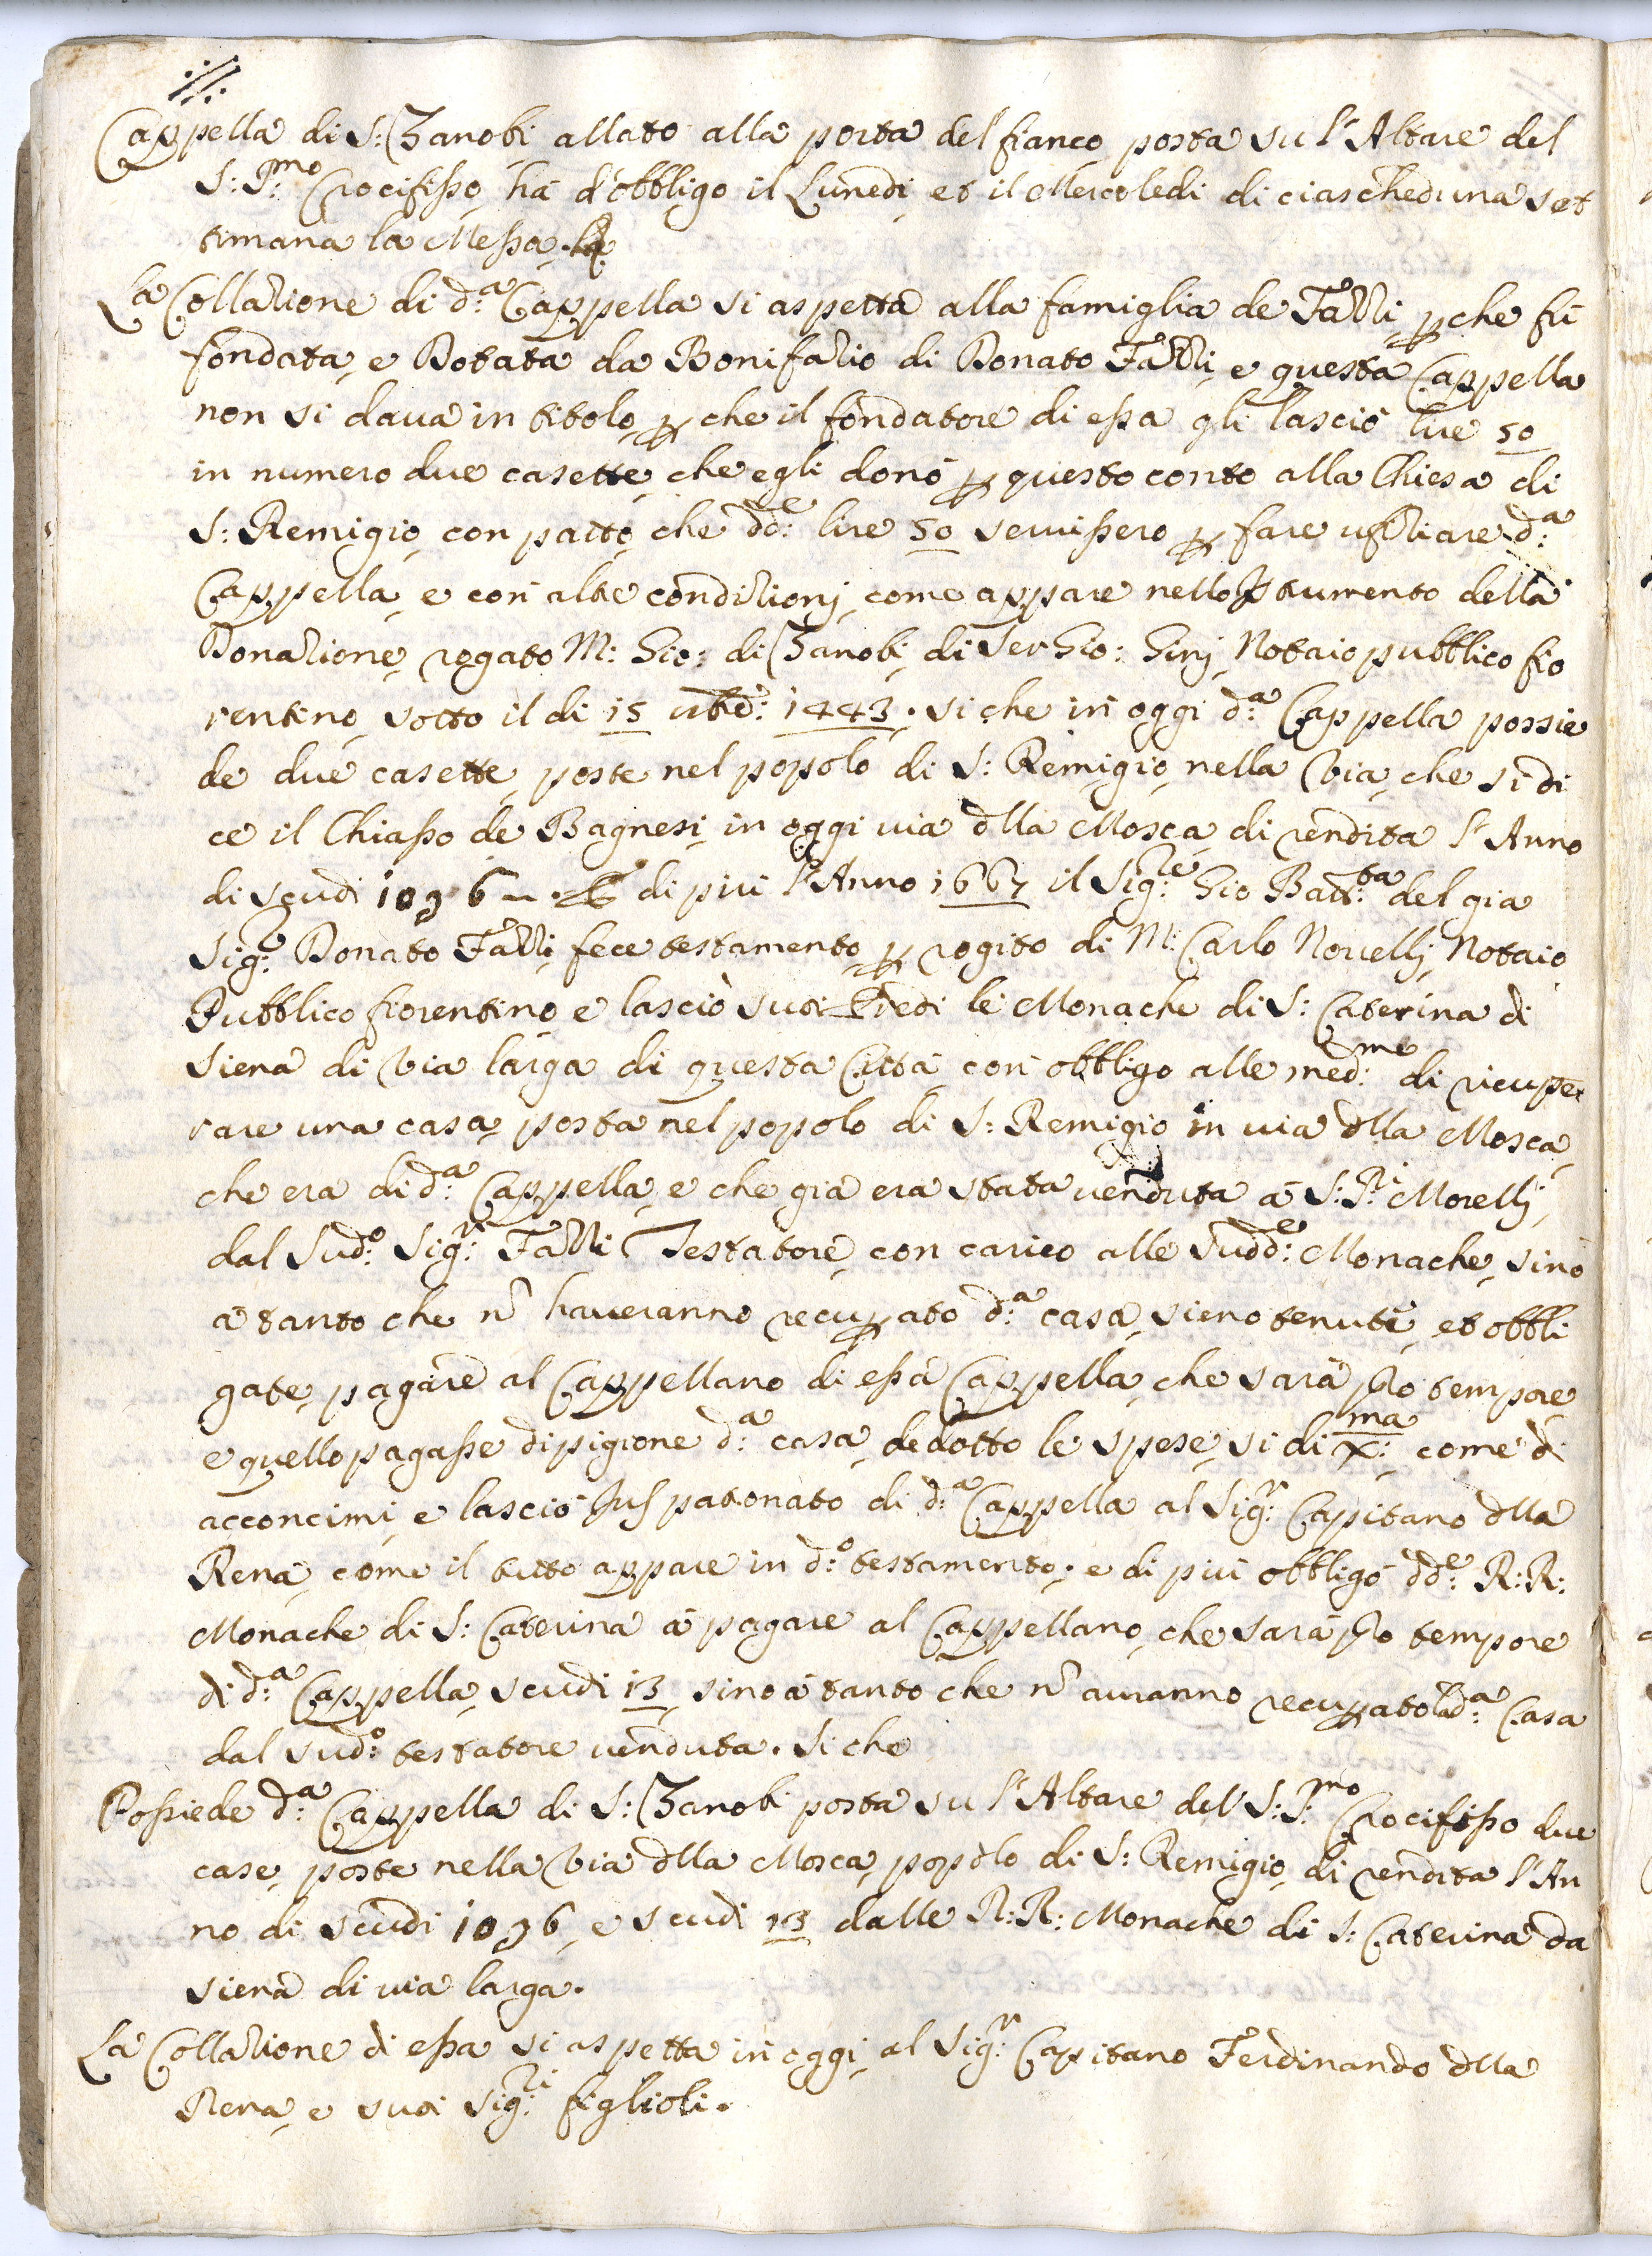 Cappella di S: Zanobi allato alla porta del fianco posta su l'Altare del
S: S:mo Crocifisso, ha d'obbligo il Lunedi, et il Mercoledi di ciascheduna set
timana la Messa.
La Collazione di d:a Cappella si aspetta alla famiglia de Fazzi, p che fù
fondata, e Dotata da Bonifazio di Donato Fazzi, e questa Cappella
non si daua in titolo, p che il fondatore di essa gli lasciò lire 50
in numero due casette, che egli donò p questo conto alla Chiesa di
S: Remigio, con patto, che dd:e lire 50 seruissero p fare ufiziare d:a
Cappella, e con altre condizionj, come appare nello Istrumento della
Donazione, rogato M: Gio: di Zanobi, di Ser Gio: Ginj Notaio pubblico fio
rentino, sotto il di 15 1443. si che in oggi d:a Cappella possie
de due casette, poste nel popolo di S: Remigio, nella Via, che si di
ce il Chiasso de Bagnesi, in oggi uia dlla Mosca, di rendita l'Anno
di scudi di più l'Anno 1667 il Sig:re Gio Batt:ta del già
Sig:r Donato Fazzi, fece testamento, p rogito di M: Carlo Nouellj, Notaio
Pubblico fiorentino e lasciò suoi Eredi le Monache di S: Caterina di
Siena di Via larga di questa Città, con obbligo alle med:me di ricupe
rare una casa, posta nel popolo di S: Remigio in uia dlla Mosca,
che era di d:a Cappella, e che già era stata uenduta à S: Morellj,
dal Sud:o Sig:r Fazzi Testatore, con carico alle Sudd:e Monache, sino
à tanto che n haueranno recupato d:a casa, sieno tenute, et obbli
gate, pagare al Cappellano di essa Cappella, che sarà pro tempore
e quello pagasse di pigione d:a casa, dedotto le spese, si di X:ma come di
acconcimi, e lasciò Jus patronato di d:a Cappella al Sig:r Capitano dlla
Rena, come il tutto appare in d:o testamento. e di più obbligò dd:e R:R:
Monache di S: Caterina à pagare al Cappellano, che sarà pro tempore
di d:a Cappella, scudi 13 sino à tanto che n auranno recupato la d:a Casa
dal sud:o testatore uenduta. Si che
Possiede d:a Cappella di S: Zanobi posta su l'Altare del S: S:mo Crocifisso due
case, poste nella Via dlla Mosca, popolo di S: Remigio, di rendita l'An
no di scudi e scudi 13 dalle R:R: Monache di S: Caterina da
Siena di uia larga.
La Collazione di essa si aspetta in oggi, al Sig:r Capitano Ferdinando dlla
Rena, e suoi Sig:ri figlioli.